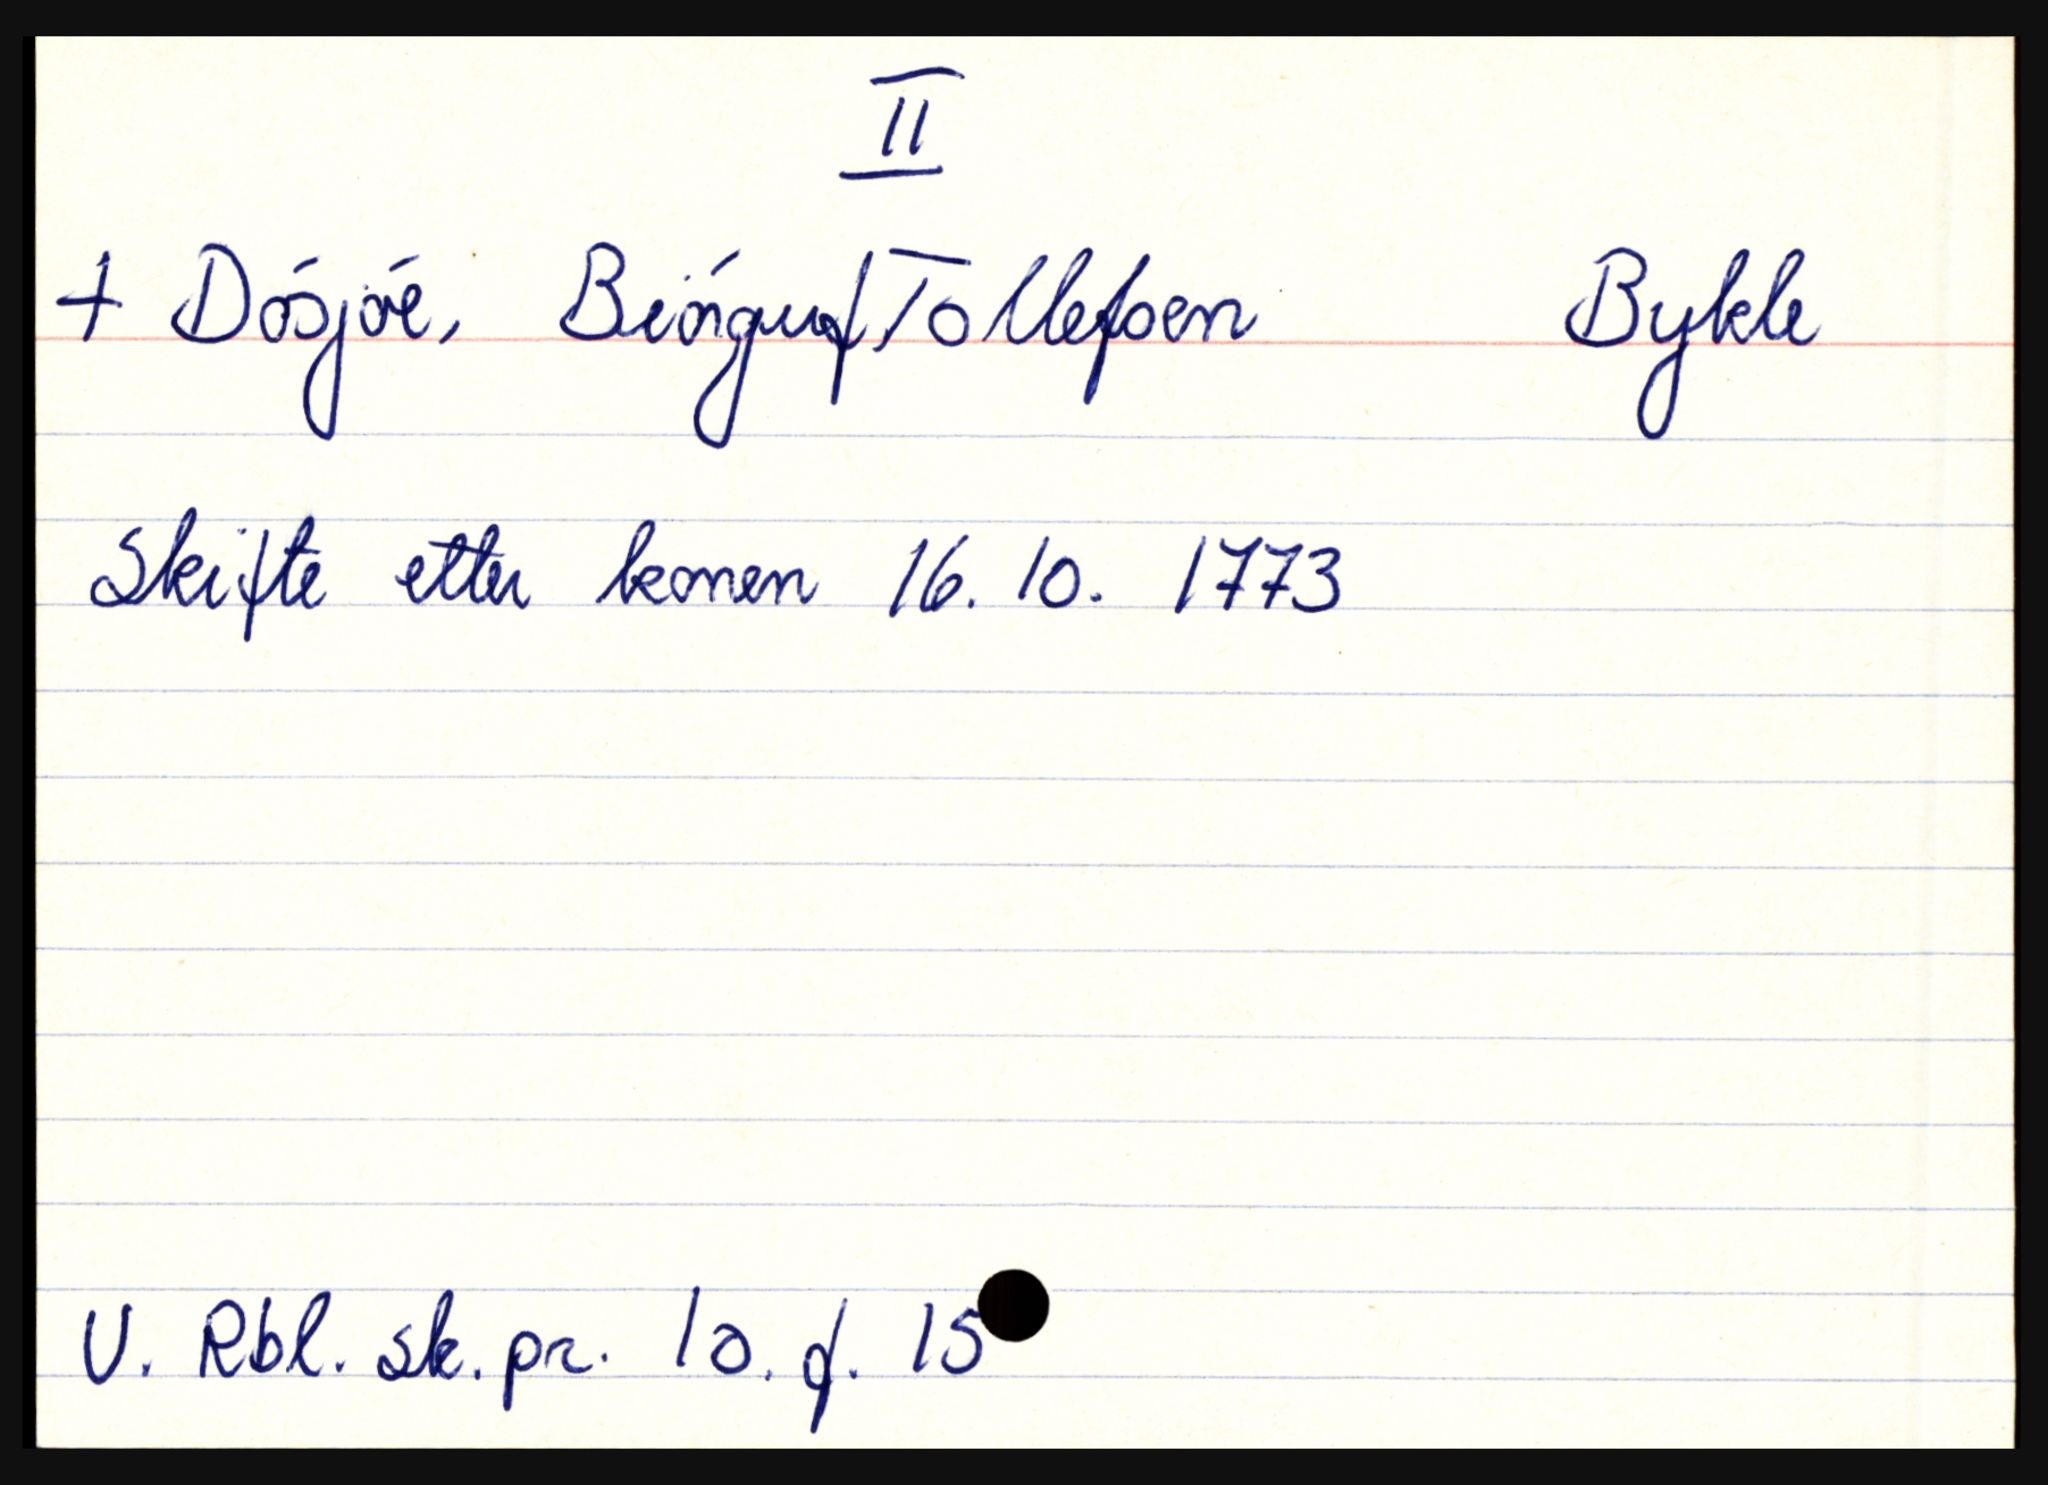 II
+ Dósjóe, Bióngulf Tollefsen Bykle
Skifte etter konen 16. 10. 1773
V. Rbl. sk. pr. 10. f. 15